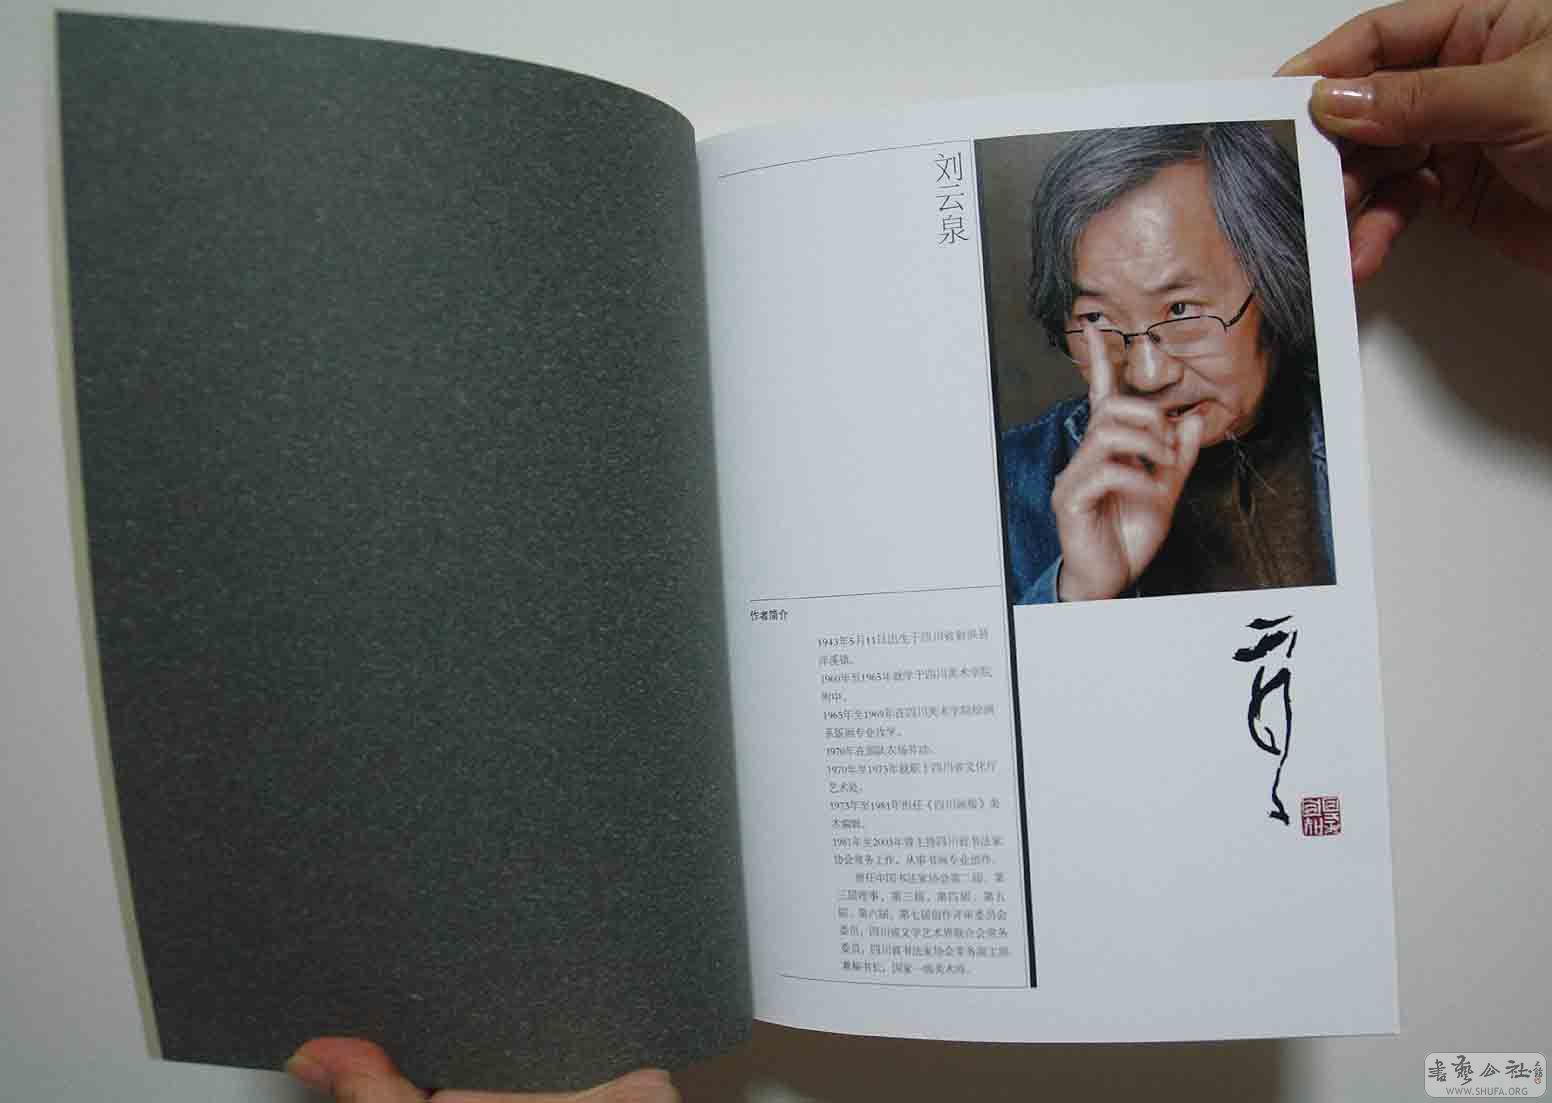 刘云泉
作者简介
1943年5月11日出生于四川省射洪县
洋溪镇。
1960年至1965年就学于四川美术学院
附中。
1965年至1969年在四川美术学院绘画
系版画专业攻学。
1970年在部队农场劳动。
1970年至1973年就职于四川省文化厅
艺术处。
1973年至1981年担任《四川画报》美
术编辑。
1981年至2003年曾主持四川省书法家
协会常务工作，从事书画专业创作。
曾任中国书法家协会第二届、第
三届理事，第三届、第四届、第五
届、第六届、第七届创作评审委员会
委员，四川省文学艺术界联合会常务
委员，四川省书法家协会常务副主席
兼秘书长，国家一级美术师。
書藝公社
WWW.SHUFA.ORG